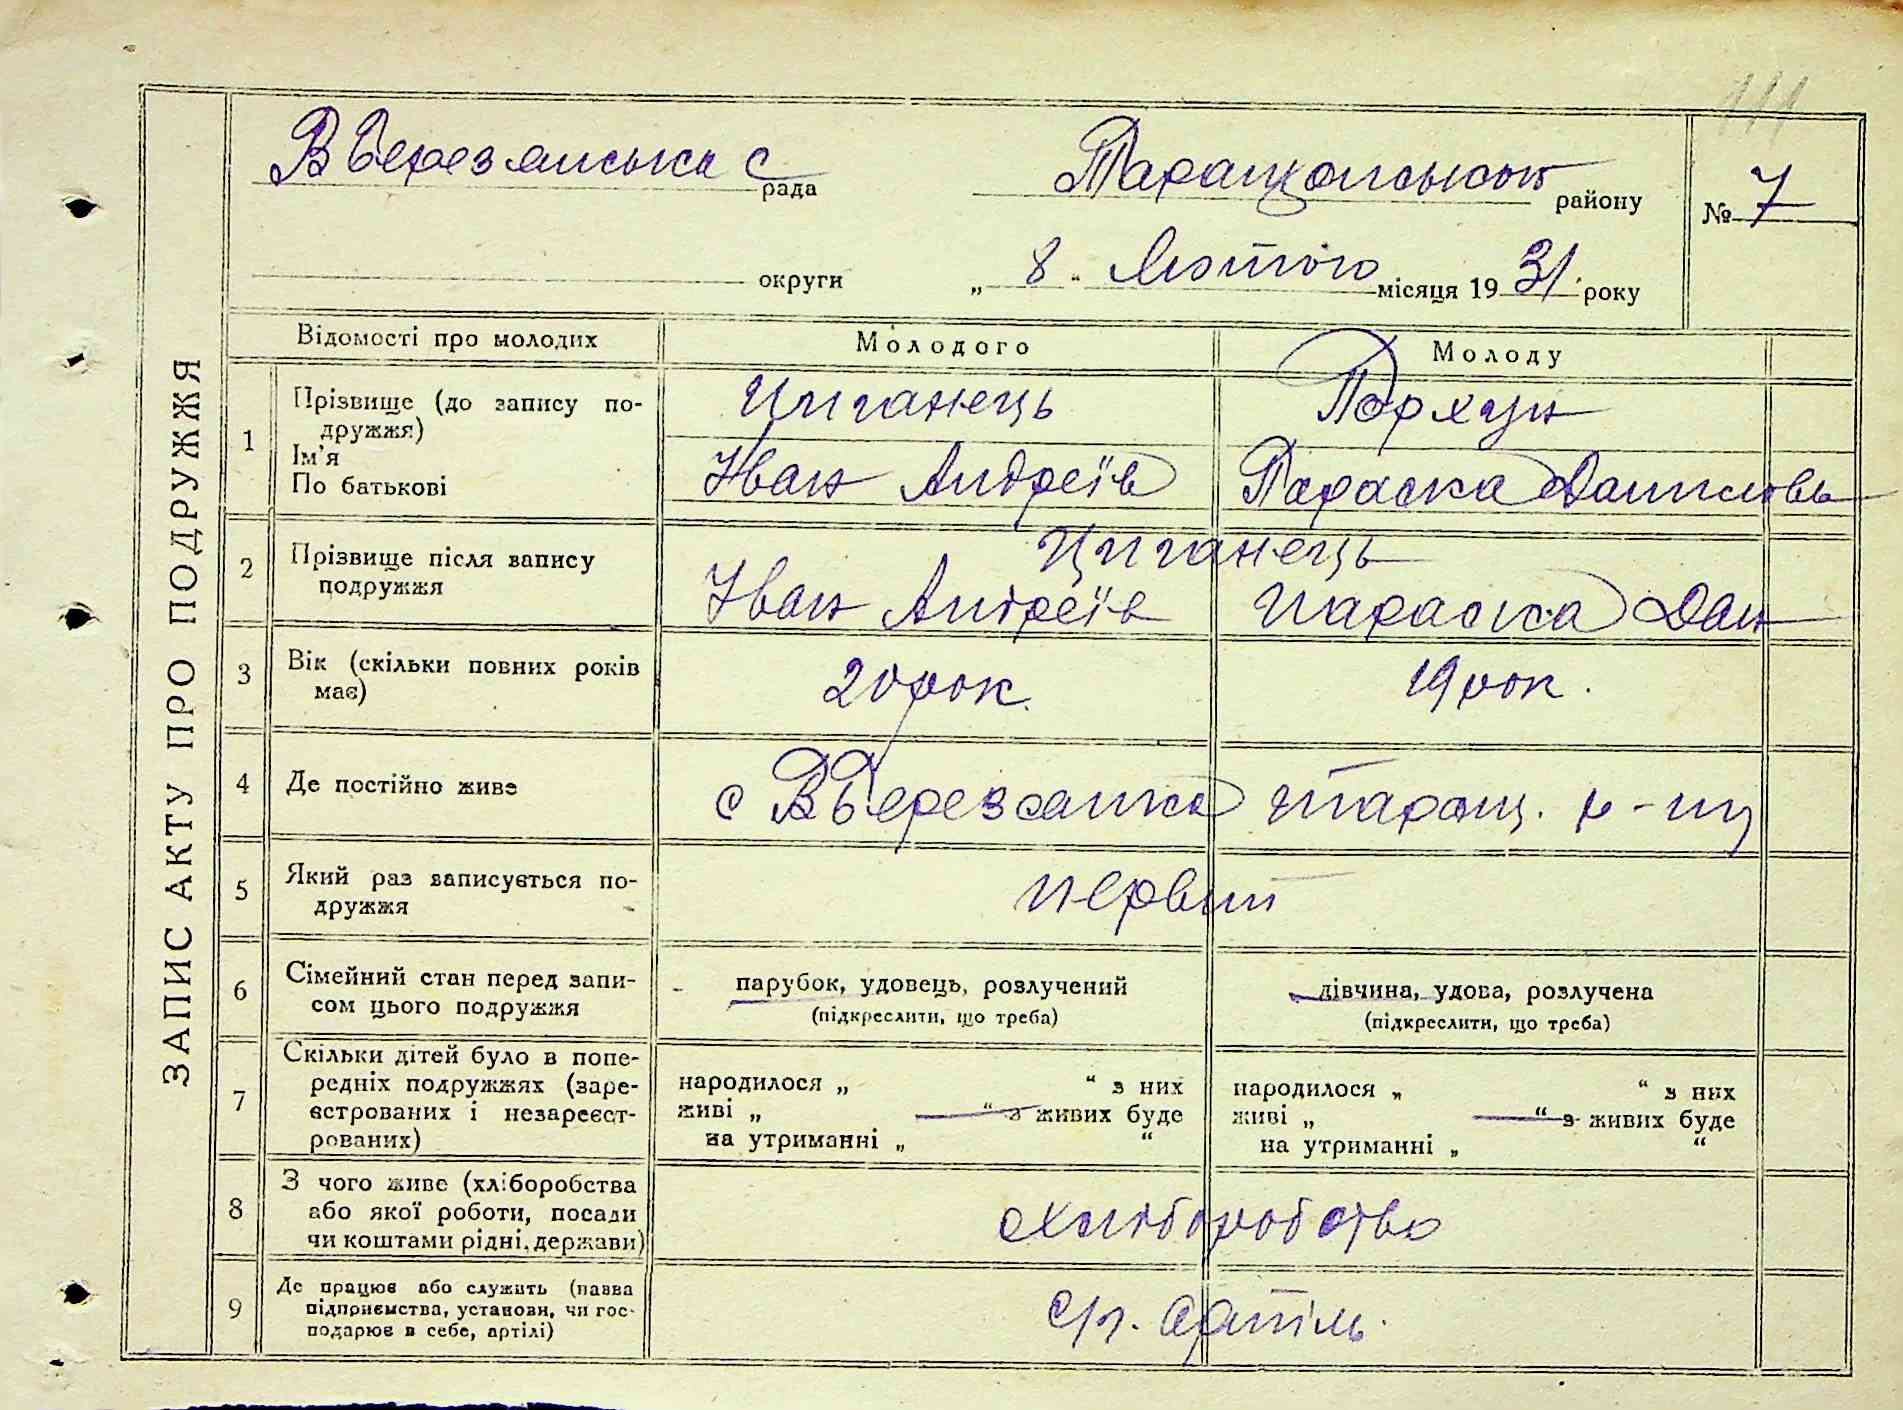 111
ЗАПИС АКТУ ПРО ПОДРУЖЖЯ
В Березянська с рада
Таращанського району
№ 7
округи
„ 8 “ Лютого місяця 1931 року
Відомості про молодих
Молодого
Молоду
1
Прізвище (до запису по-
дружжя)
Ім'я
По батькові
Циганець
Іван Андреїв
Пархун
Параска Данилова
2
Прізвище після запису
подружжя
Циганець
Іван Андреїв
Параска Дан
3
Вік (скільки повних років
має)
20 рок.
19 рок.
4
Де постійно живе
с В Березанка таращ. р-ну
5
Який раз записується по-
дружжя
первий
6
Сімейний стан перед запи-
сом цього подружжя
парубок, удовець, розлучений
(підкреслити, що треба)
дівчина, удова, розлучена
(підкреслити, що треба)
7
Скільки дітей було в попе-
редніх подружжях (заре-
єстрованих і незареєст-
рованих)
народилося „ “ з них
живі „ “ з живих буде
на утриманні „ “
народилося „ “ з них
живі „ “ з живих буде
на утриманні „ “
8
З чого живе (хліборобства
або якої роботи, посади
чи коштами рідні, держави)
хліборобство
9
Де працює або служить (назва
підприємства, установи, чи гос-
подарює в себе, артілі)
с/г. артіль.